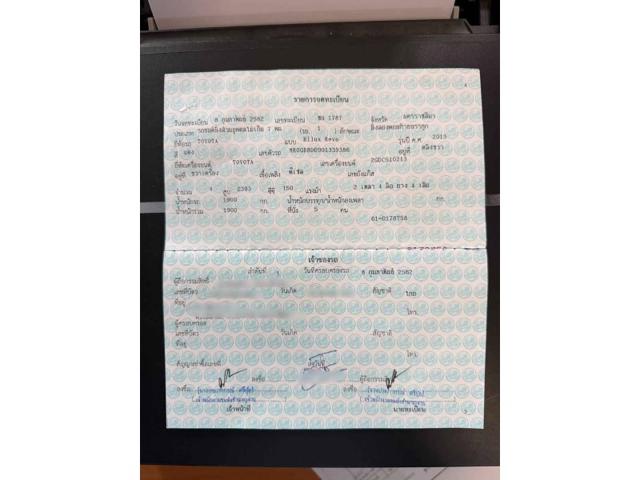 4
รายการจดทะเบียน
วันจดทะเบียน 8 กุมภาพันธ์ 2562 เลขทะเบียน 1787 จังหวัด นครราชสีมา
ประเภท รถยนต์นั่งส่วนบุคคลไม่เกิน 7 คน (รย. 1 ) ลักษณะ
ยี่ห้อรถ TOYOTA แบบ Hilux Revo รุ่นปี ค.ศ. 2019
สี แดง เลขตัวรถ อยู่ที่
ยี่ห้อเครื่องยนต์ TOYOTA เลขเครื่องยนต์
อยู่ที่ ขวาเครื่อง เชื้อเพลิง ดีเซล เลขถังแก๊ส
จำนวน 4 สูบ 2393 ซีซี 150 แรงม้า 2 เพลา 4 ล้อ ยาง 4 เส้น
น้ำหนักรถ 1900 กก. น้ำหนักบรรทุก/น้ำหนักลงเพลา กก.
น้ำหนักรวม 1900 กก. ที่นั่ง 5 คน
61-0178758
เจ้าของรถ
ลำดับที่ 1 วันที่ครอบครองรถ 8 กุมภาพันธ์ 2562
ผู้ถือกรรมสิทธิ์
เลขที่บัตร วันเกิด สัญชาติ ไทย
ที่อยู่
โทร.
ผู้ครอบครอง
เลขที่บัตร วันเกิด สัญชาติ
ที่อยู่
โทร.
สัญญาเช่าซื้อเลขที่
ลงชื่อ ผู้ถือกรรมสิทธิ์
ลงชื่อ ลงชื่อ
เจ้าหน้าที่ นายทะเบียน
5